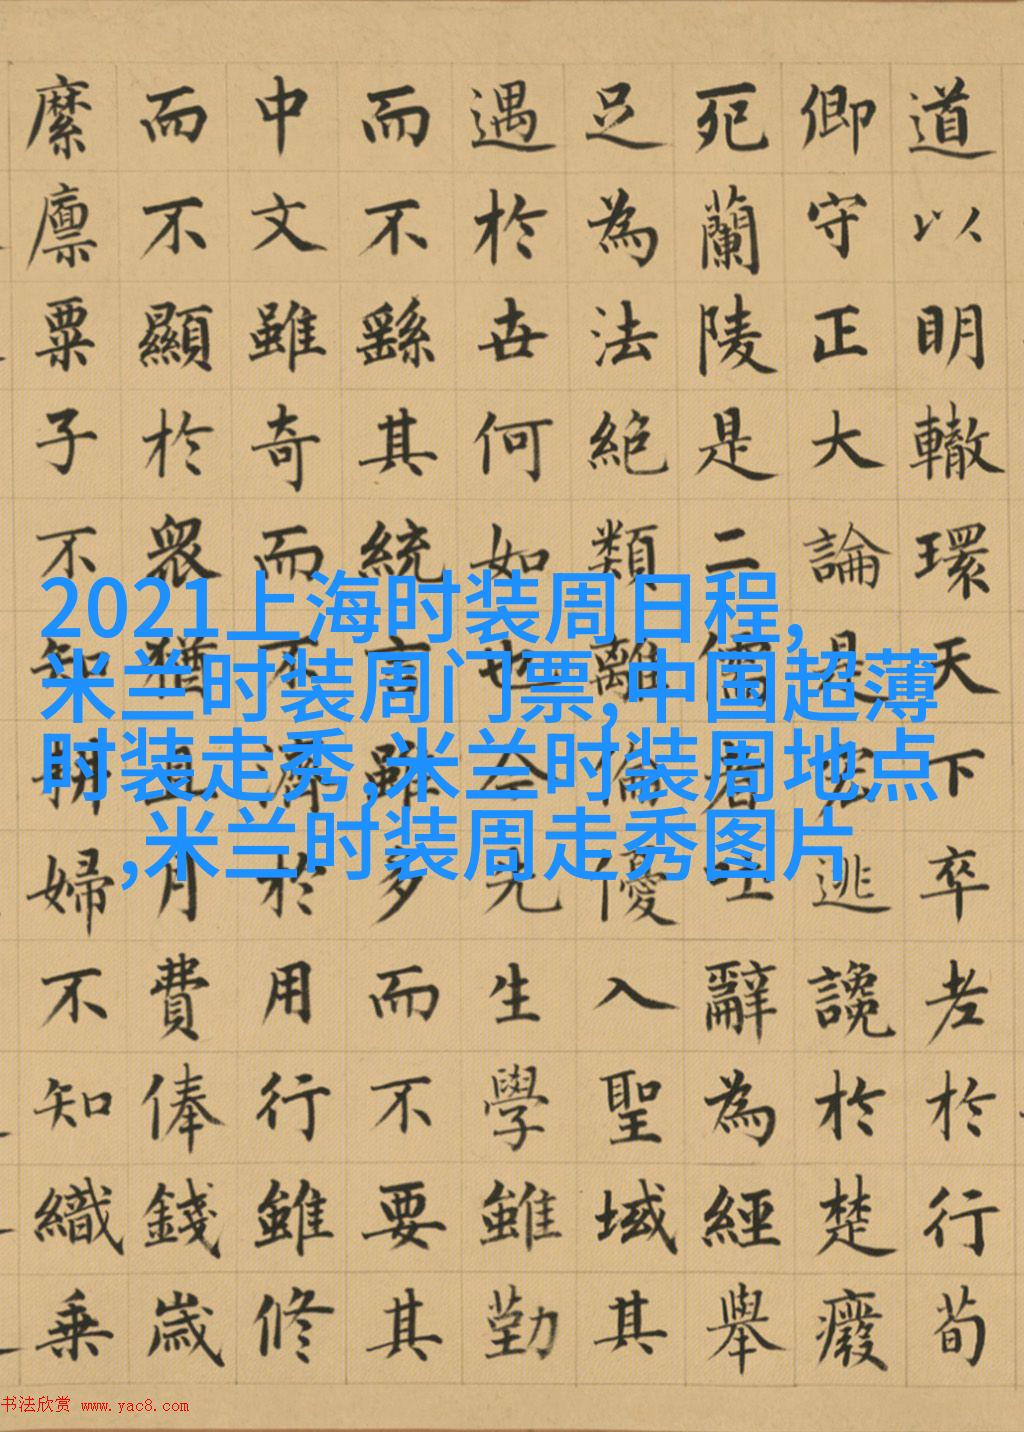 道以明轍環天下卒老於行荀
卿守正大論是弘逃讒於楚癈
死蘭陵是二儒者吐辭為經舉
足為法絕類離倫優入聖域其
遇於世何如也今先生學雖勤
而不繇其統言雖多而不要其
中文雖奇而不濟於用行雖修
而不顯於衆猶且月費俸錢歲
糜廩粟子不知耕婦不知織乘
2021上海时装周日程,
米兰时装周门票,中国超薄
时装走秀,米兰时装周地点
,米兰时装周走秀图片
书法欣赏 www.yac8.com